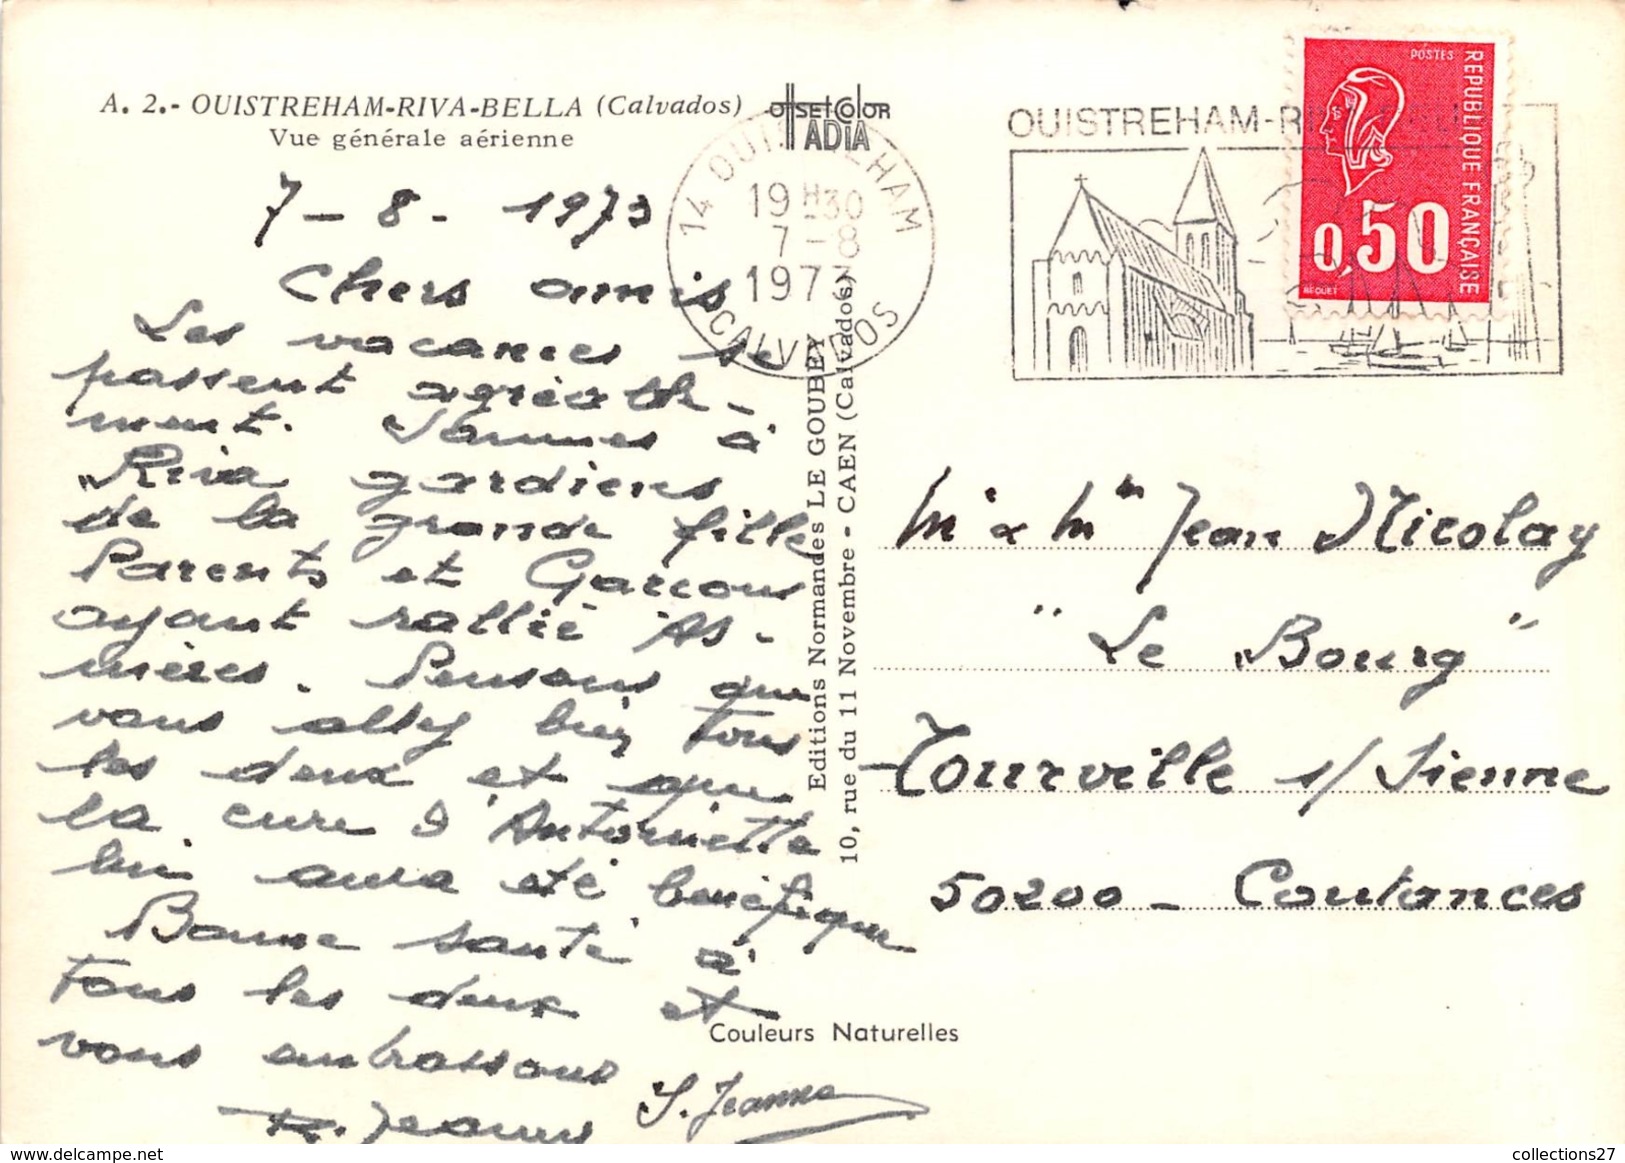 A. 2.- OUISTREHAM-RIVA-BELLA (Calvados)
Vue générale aérienne
OFFSET COLOR
ADIA
7 - 8 - 1973
Chers amis
Les vacances se
passent agréable-
ment. Sommes à
Riva gardiens
de la grande fille
Parents et Garçons
ayant rallié As-
nières. Pensons que
vous allez bien tous
les deux et que
la cure d'Antoinette
lui aura été bénéfique
Bonne santé à
tous les deux et
vous embrassons
S. Jeanne
14 OUISTREHAM
19 H 30
7 - 8
1973
CALVADOS
Editions Normandes LE GOUBEY
10, rue du 11 Novembre - CAEN (Calvados)
OUISTREHAM-RI
POSTES
REPUBLIQUE FRANÇAISE
0,50
BEQUET
Mr & Mme Jean Nicolay
"Le Bourg"
Tourville s/ Sienne
50200 - Coutances
Couleurs Naturelles
collections27